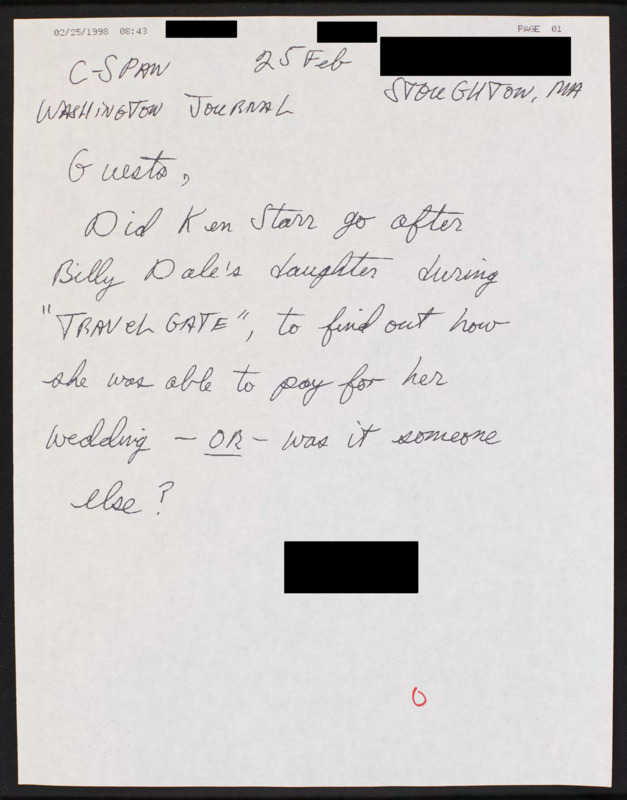 02/25/1998 08:43 PAGE 01
C-SPAN 25 Feb
STOUGHTON, MA
WASHINGTON JOURNAL
Guests,
Did Ken Starr go after
Billy Dale's daughter during
"TRAVEL GATE", to find out how
she was able to pay for her
wedding — OR — was it someone
else?
0